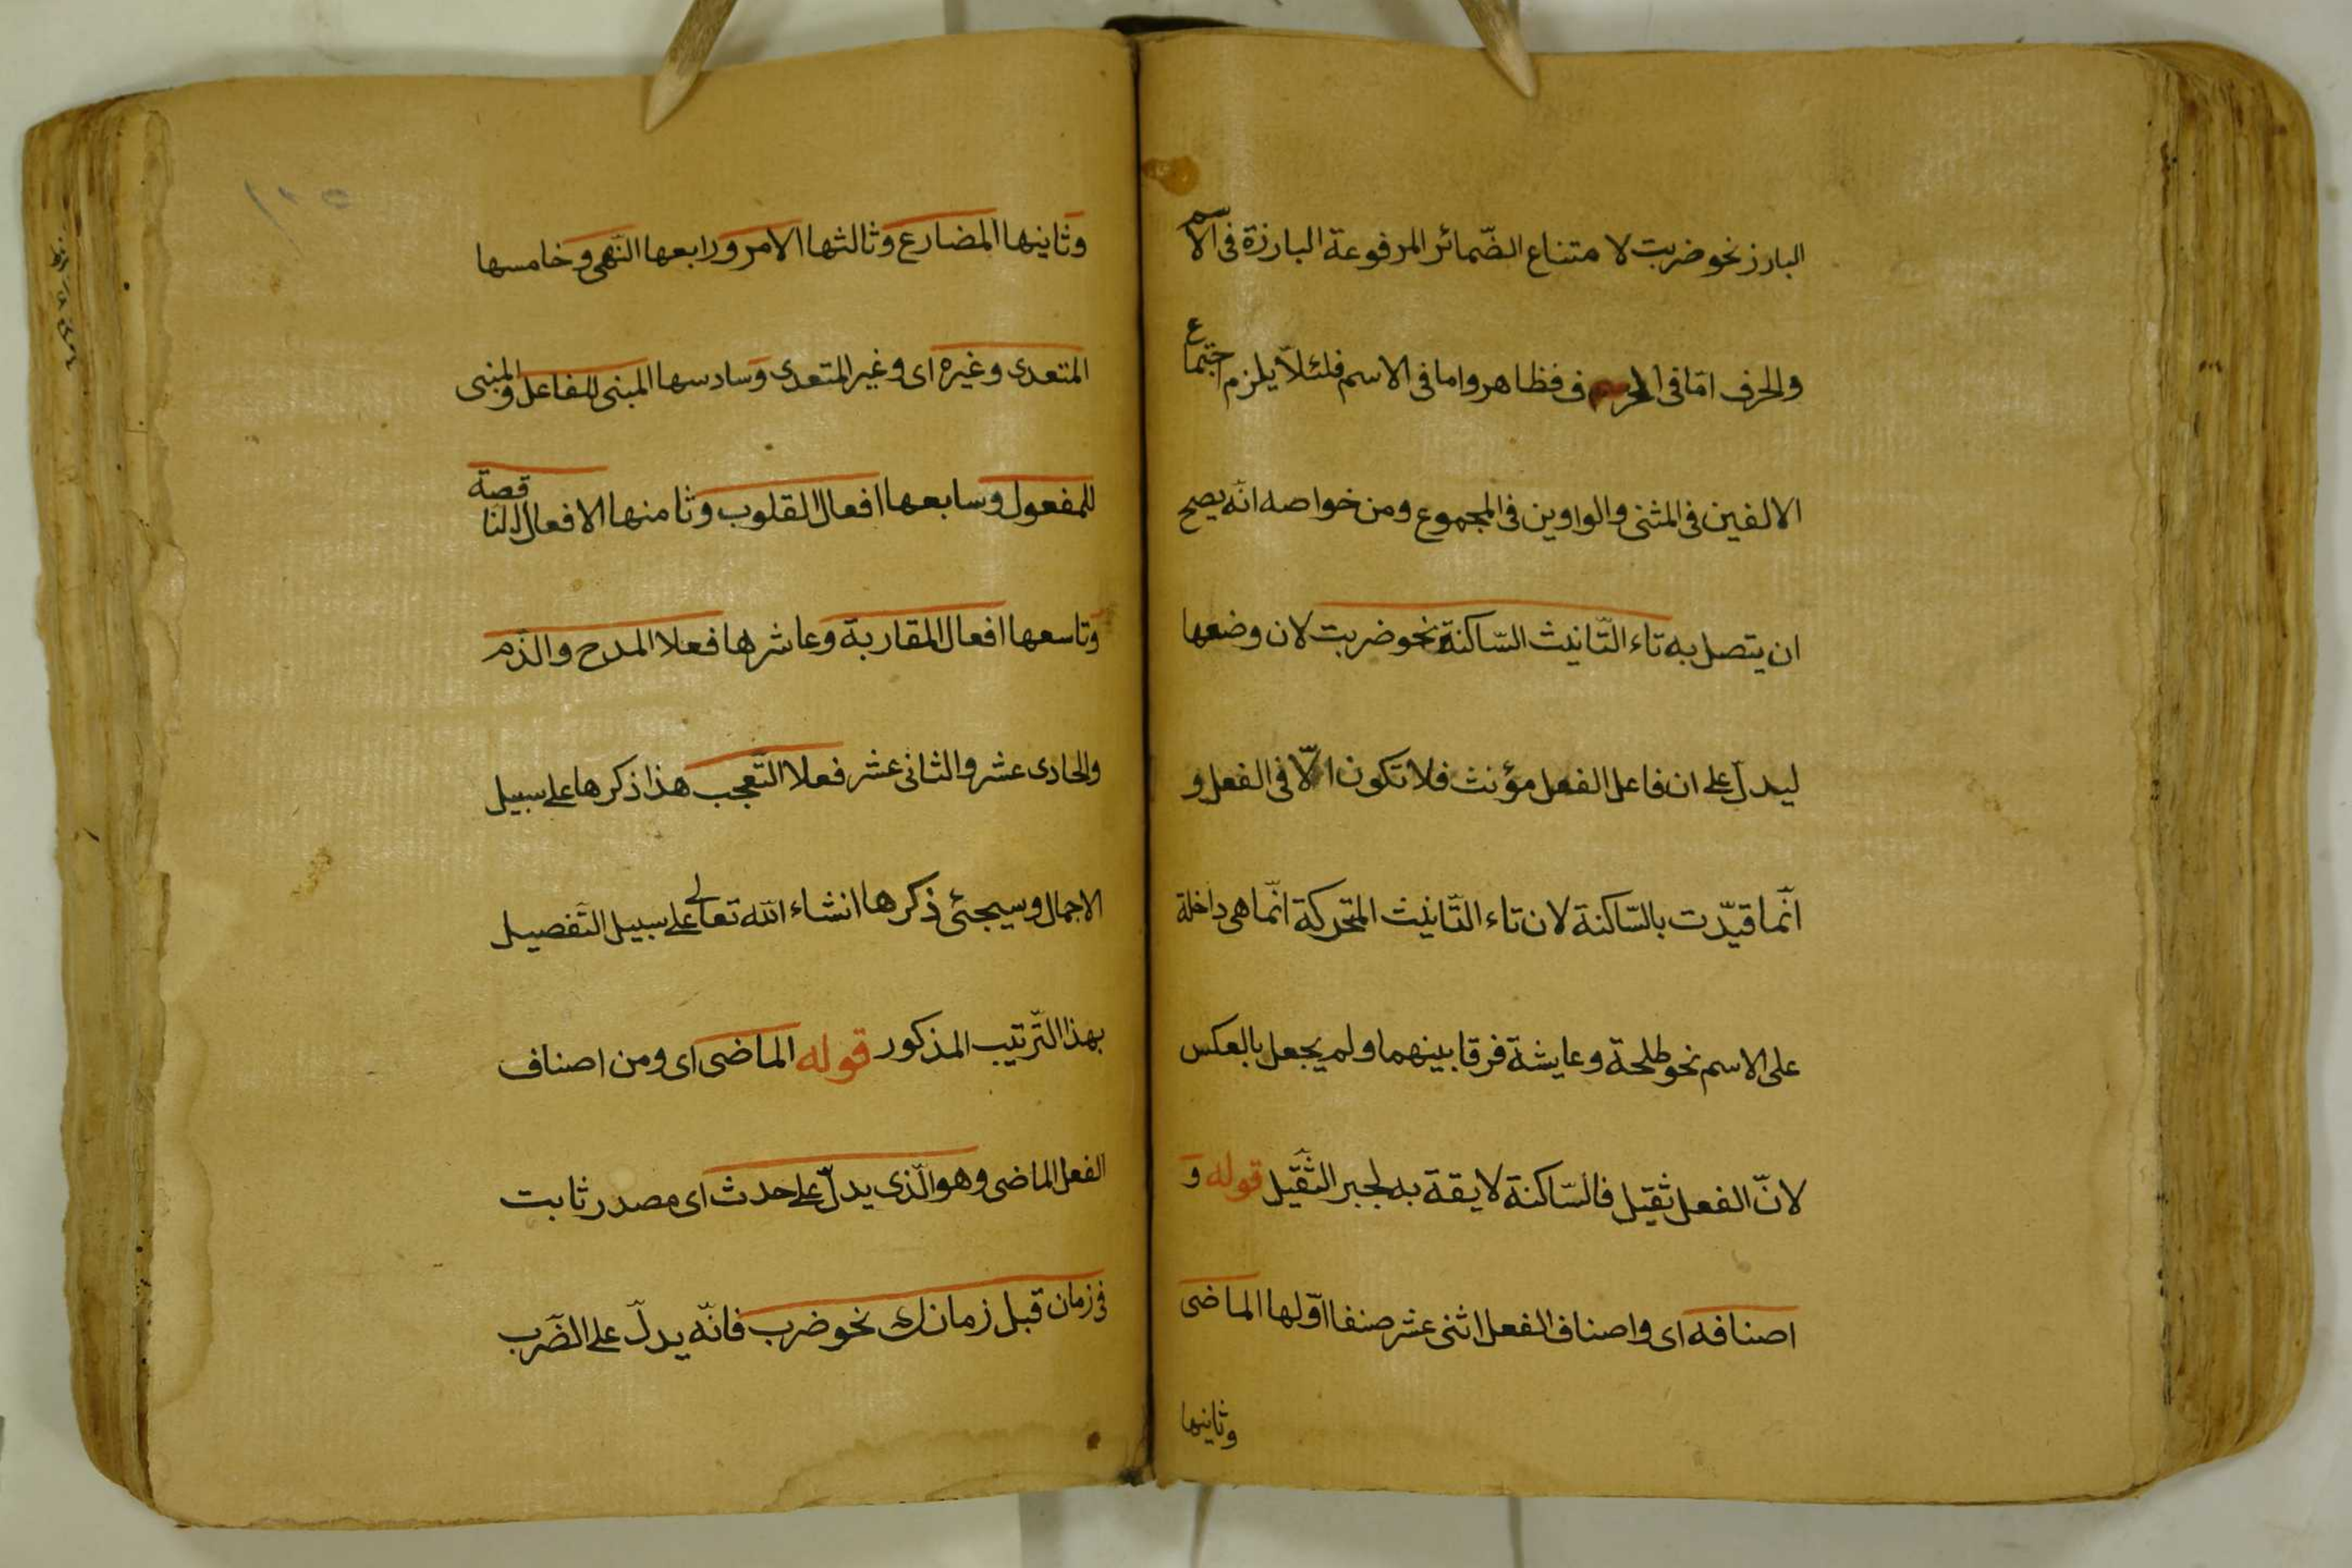 البارز نحو ضربت لا متناع الضّمائر المرفوعة البارزة فى الاسم
والحرف امّا فى الحرف فظاهر واما فى الاسم فلئلّا يلزم اجتماع
الالفين فى المثنى والواوين فى المجموع ومن خواصه انّه يصح
ان يتصل به تاء التّانيث السّاكنة نحو ضربت لان وضعها
ليدلّ على ان فاعل الفعل مؤنث فلا تكون الّا فى الفعل و
انّما قيّدت بالسّاكنة لان تاء التّانيث المتحركة انّما هى داخلة
على الاسم نحو طلحة وعايشة فرقا بينهما ولم يجعل بالعكس
لانّ الفعل ثقيل فالسّاكنة لايقة به لجبر الثّقيل قوله و
اصنافه اى واصناف الفعل اثنى عشر صنفا اوّلها الماضى
وثانيها
وثانيها المضارع وثالثها الامر ورابعها النّهى وخامسها
المتعدى وغيره اى وغير المتعدى وسادسها المبنى للفاعل والمبنى
للمفعول وسابعها افعال القلوب وثامنها الافعال الناقصة
وتاسعها افعال المقاربة وعاشرها فعلا المدح والذّم
والحادى عشر والثانى عشر فعلا التّعجب هذا ذكرها على سبيل
الاجمال وسيجئ ذكرها انشاء الله تعالى على سبيل التّفصيل
بهذا التّرتيب المذكور قوله الماضى اى ومن اصناف
الفعل الماضى وهو الّذى يدلّ على حدث اى مصدر ثابت
فى زمان قبل زمانك نحو ضرب فانّه يدلّ على الضّرب